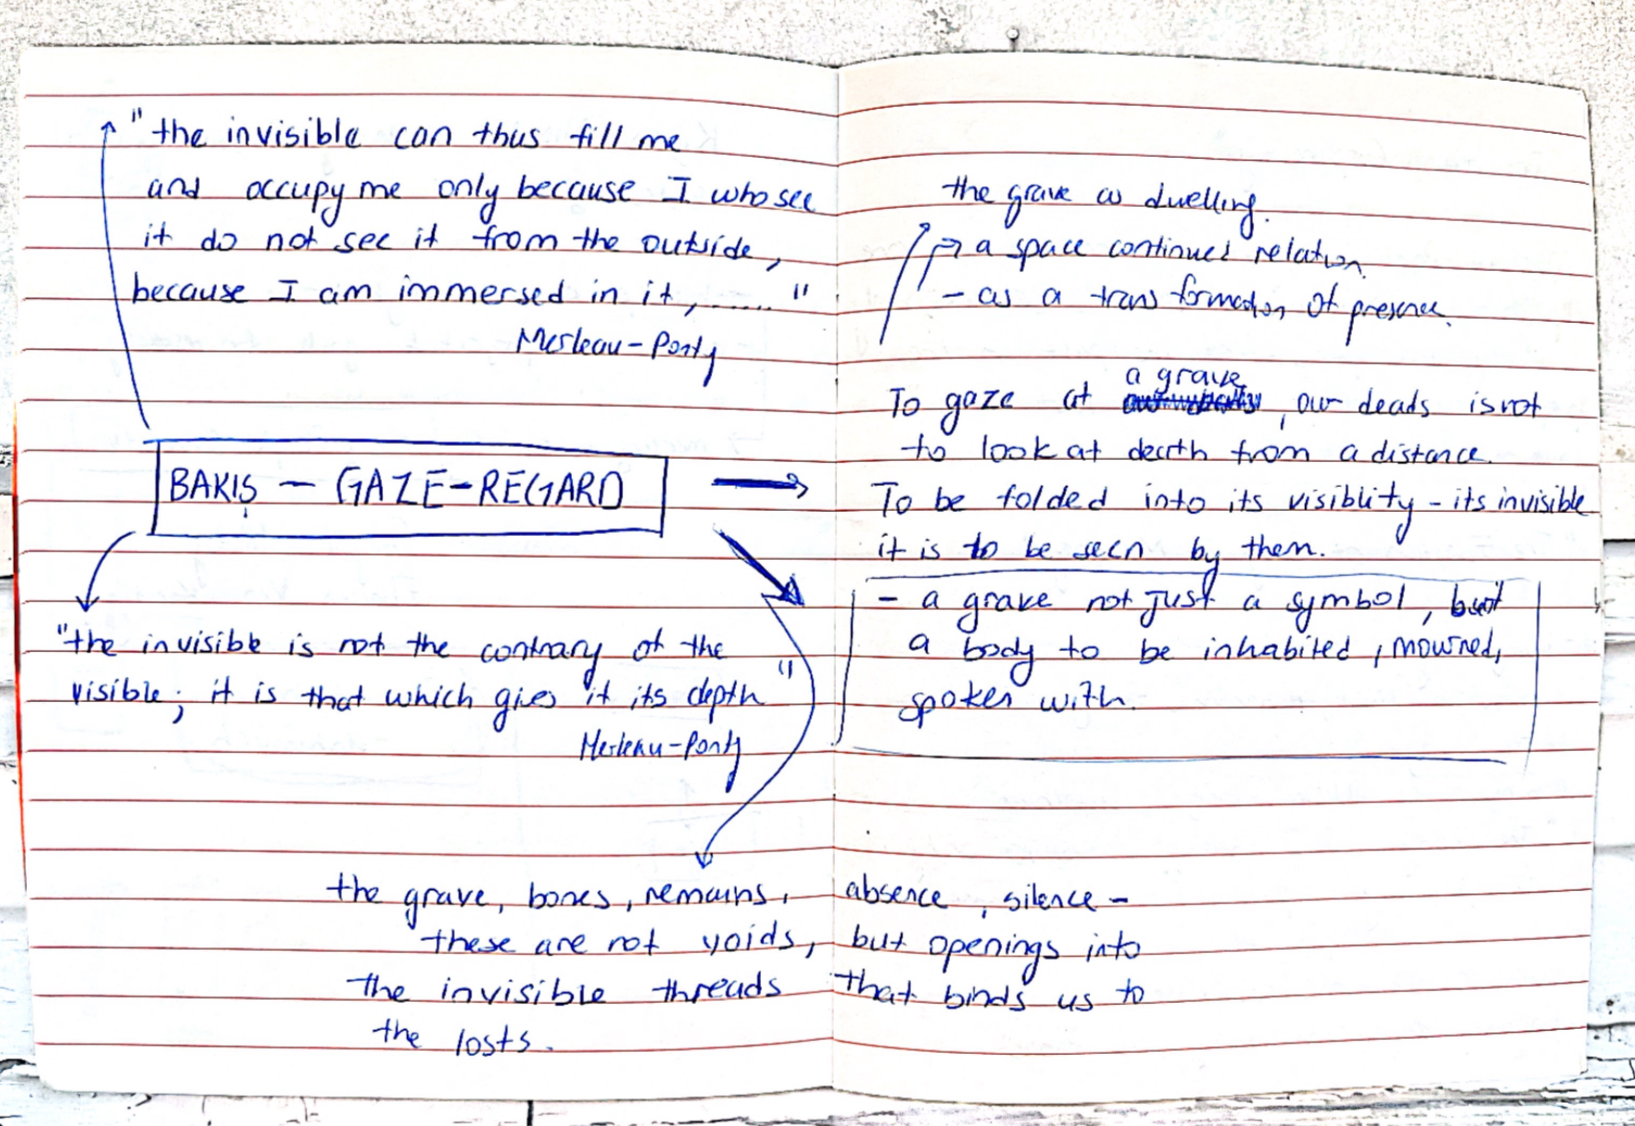 "the invisible can thus fill me
and occupy me only because I who see
it do not see it from the outside,
because I am immersed in it, ...... "
Merleau-Ponty
BAKIŞ — GAZE-REGARD
"the invisible is not the contrary of the
visible; it is that which gives it its depth "
Merleau-Ponty
the grave as dwelling.
a space continued relation.
- as a transformation of presence.
a grave
To gaze at , our deads is not
to look at death from a distance.
To be folded into its visiblity - its invisible
it is to be seen by them.
- a grave not just a symbol, but
a body to be inhabited, mourned,
spoken with.
the grave, bones, remains, absence, silence -
these are not voids, but openings into
the invisible threads that binds us to
the losts.